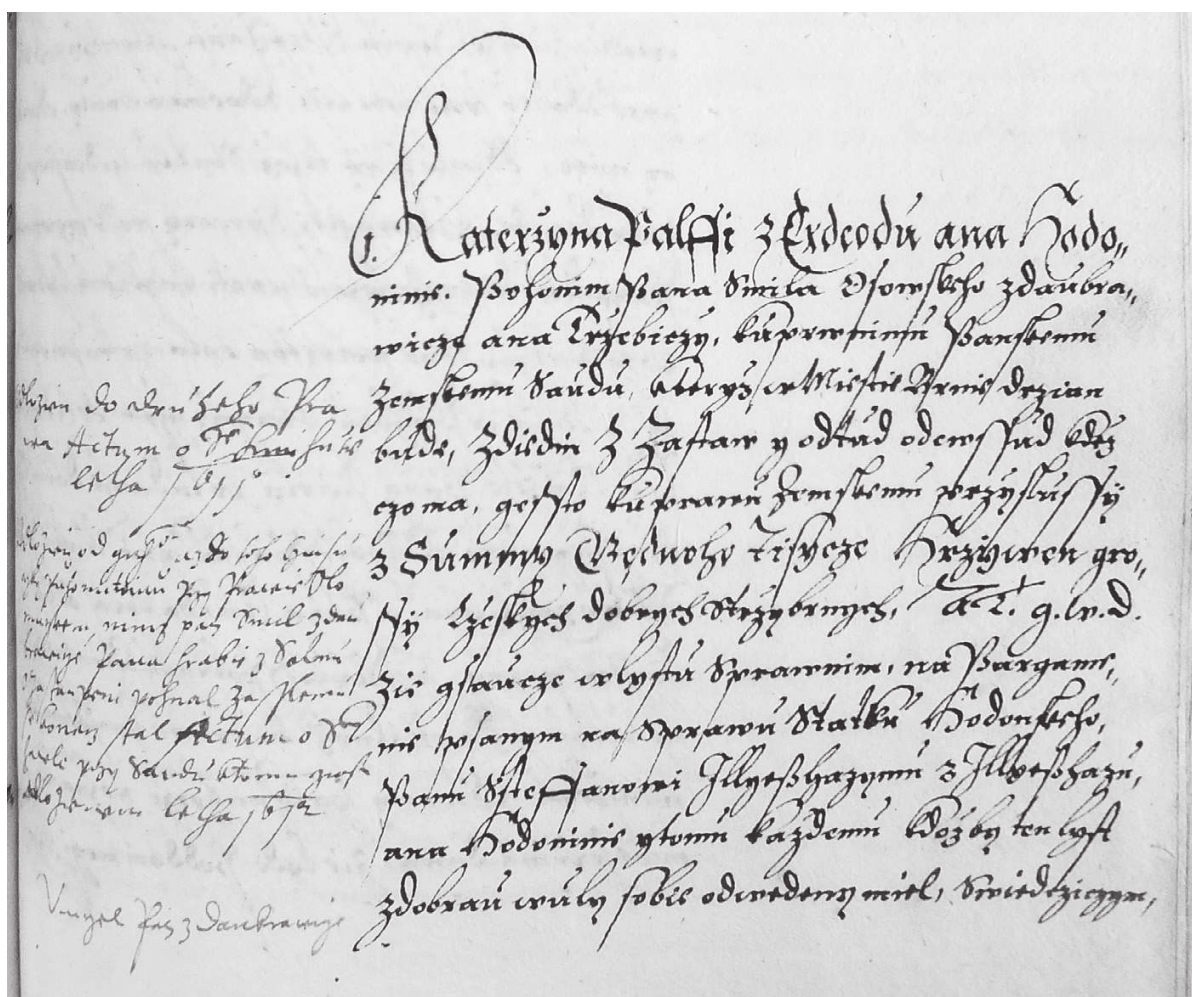 1. Katerzyna Palffi z Erdeodu ana Hodo„
ninie. Pohonim Pana Smila Osowskeho zdaubra„
wicze ana Trzebiczy, kuprwnimu Panskemu
Zemskemu Saudu, kteryz wMiestie Brnie drzian
bude, Zdiedin Z Zastaw y odtud odewssud kdez
czo ma, gessto kuprawu Zemskemu przyslussy
z Summy Gednoho Tisycze Hrzywen gro„
ssy Czeskych dobrych Strzybrnych, A T. g. w. d.
Zie gsaucze wlystu Sprawnim, na Pargame„
nie psanym na Sprawu Statku Hodonskeho,
Panu Ssteffanowi Illyeßhazymu z Illyeßhazu,
ana Hodoninie ytomu kazdemu kdozby ten lyst
zdobrau wuly sobie odwedeny miel, Swiedcziczym,
do druheho Pra
wa Actum o
letha 1611
od
Pan Smil z dau
brawicze Pana hrabie z Salmu
pohnal za
stal Actum o
przy Saudu
letha 1612
Umrzel Pan z Daubrawicze